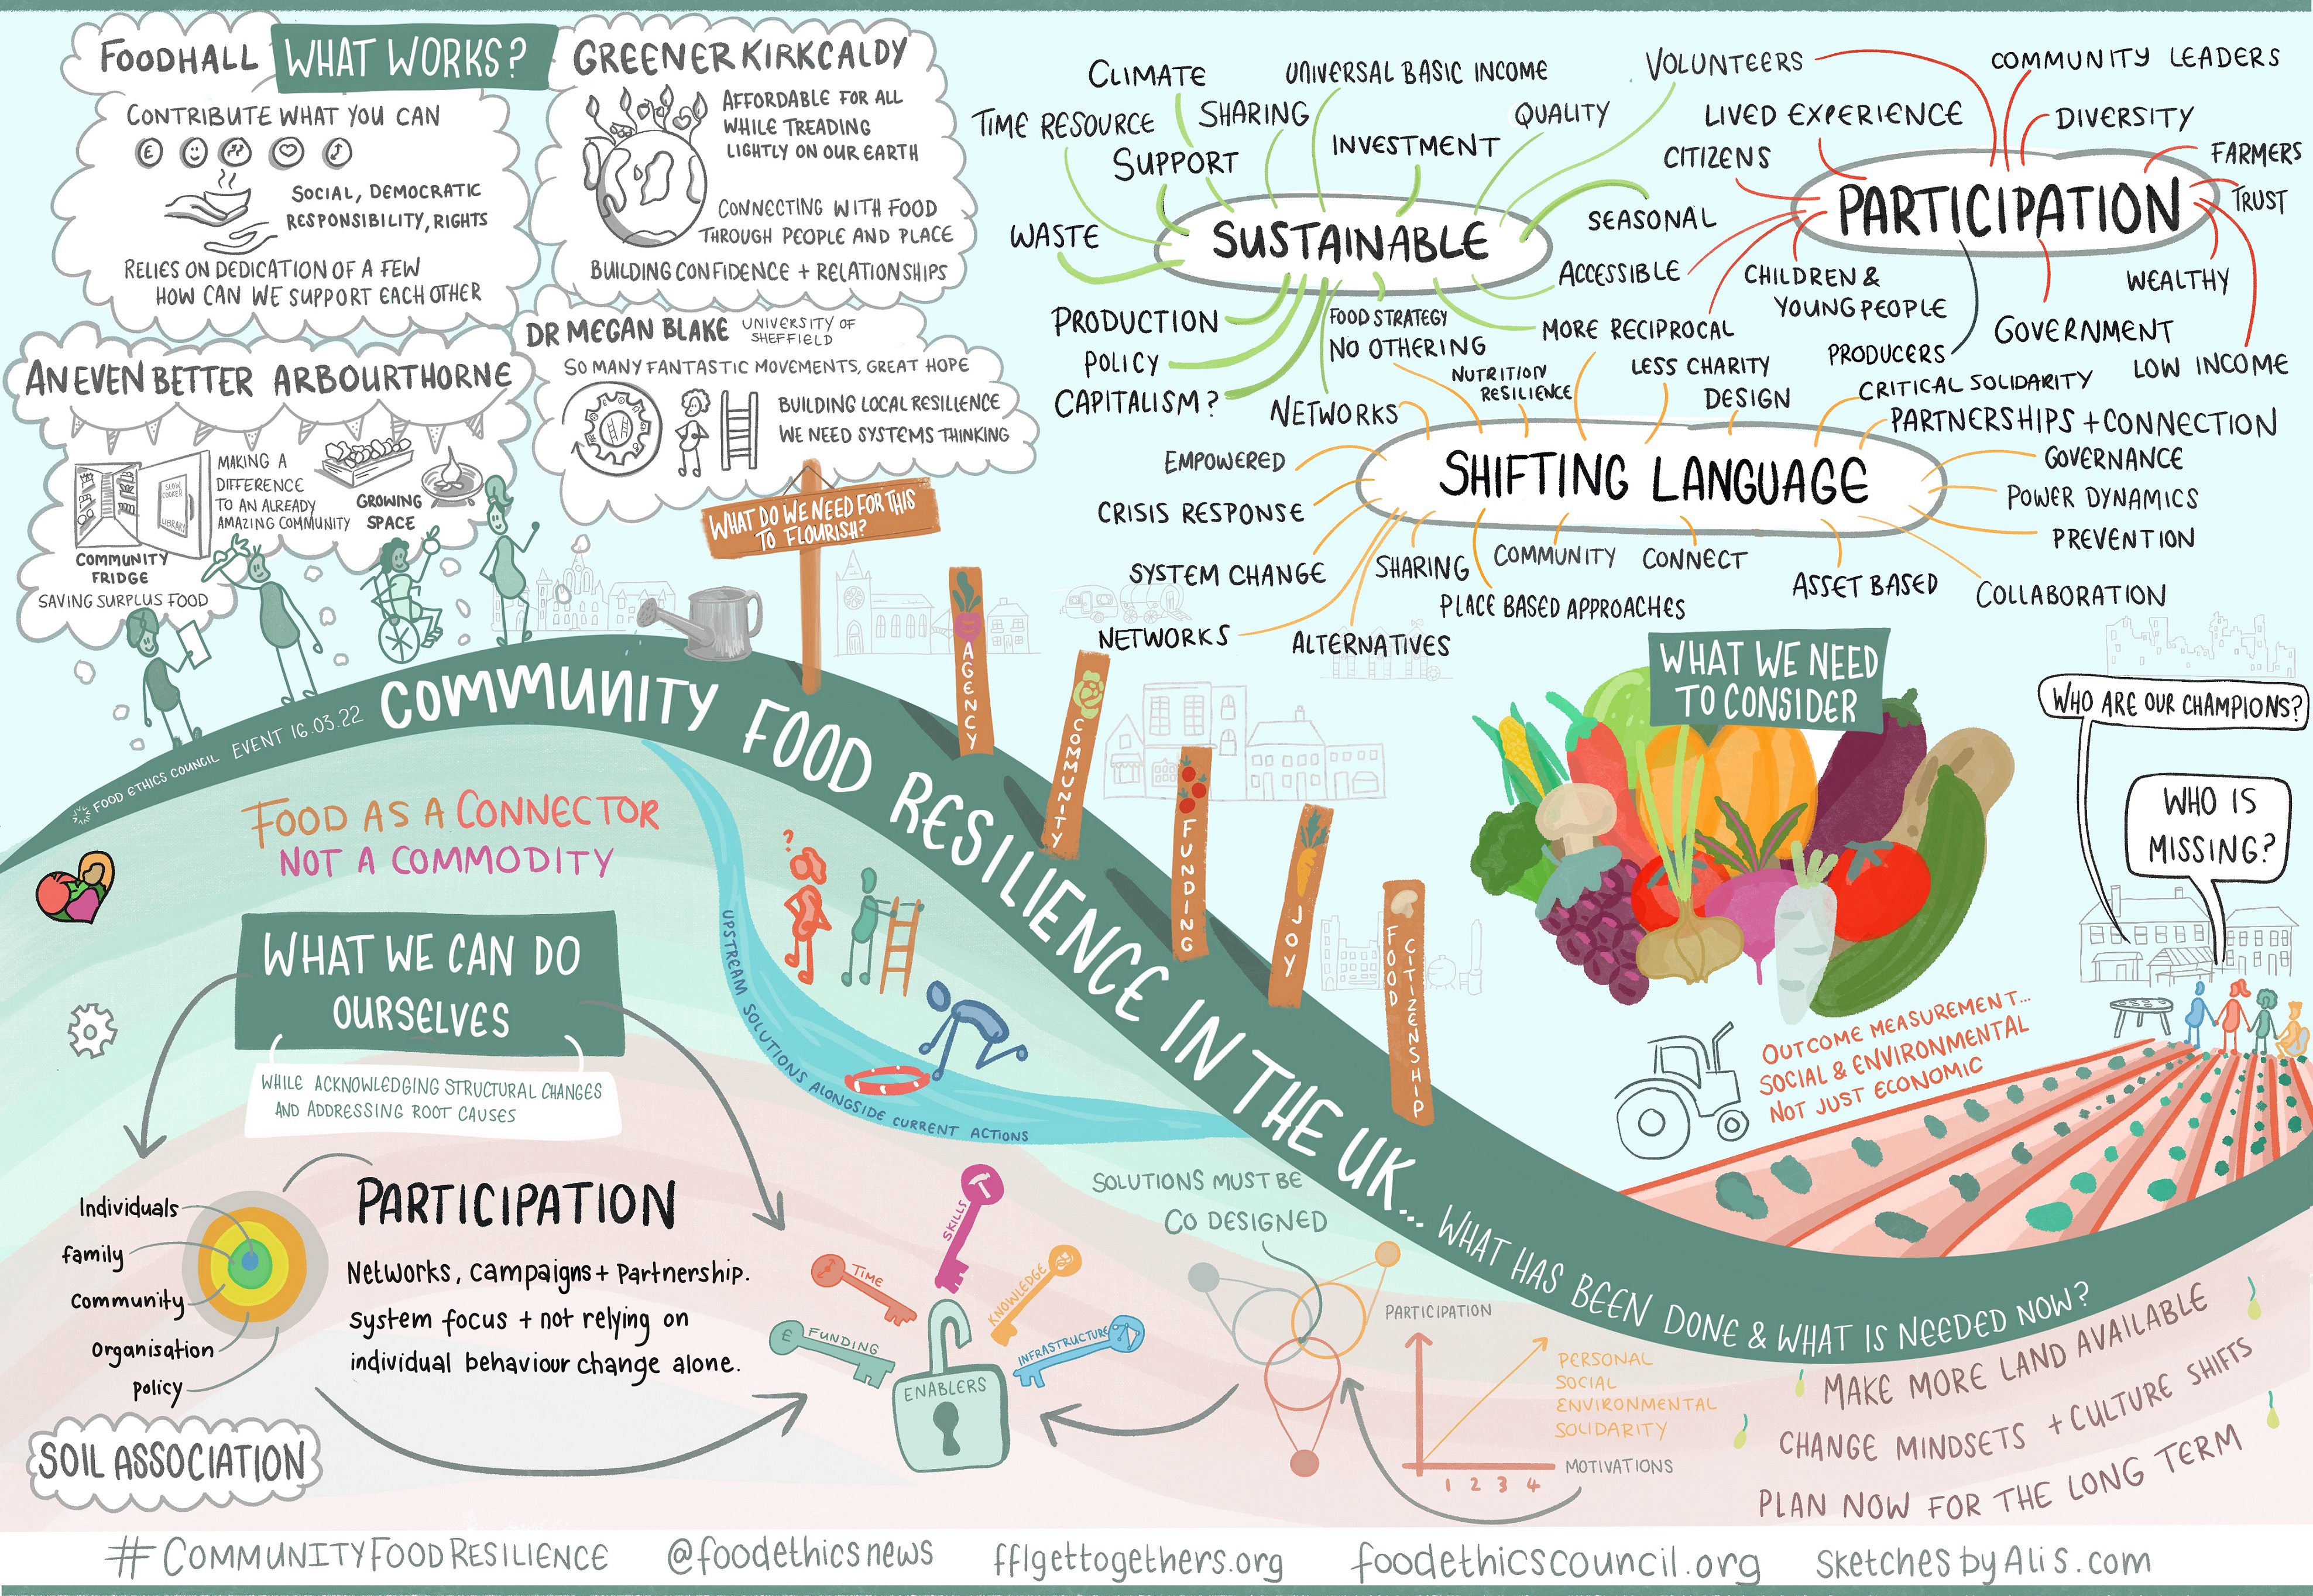 FOODHALL
WHAT WORKS?
CONTRIBUTE WHAT YOU CAN
£
SOCIAL, DEMOCRATIC
RESPONSIBILITY, RIGHTS
RELIES ON DEDICATION OF A FEW
HOW CAN WE SUPPORT EACH OTHER
GREENER KIRKCALDY
AFFORDABLE FOR ALL
WHILE TREADING
LIGHTLY ON OUR EARTH
CONNECTING WITH FOOD
THROUGH PEOPLE AND PLACE
BUILDING CONFIDENCE + RELATIONSHIPS
AN EVEN BETTER ARBOURTHORNE
SLOW
COOKER
LIBRARY
MAKING A
DIFFERENCE
TO AN ALREADY
AMAZING COMMUNITY
GROWING
SPACE
COMMUNITY
FRIDGE
SAVING SURPLUS FOOD
DR MEGAN BLAKE
UNIVERSITY OF
SHEFFIELD
SO MANY FANTASTIC MOVEMENTS, GREAT HOPE
BUILDING LOCAL RESILIENCE
WE NEED SYSTEMS THINKING
WHAT DO WE NEED FOR THIS
TO FLOURISH?
CLIMATE
UNIVERSAL BASIC INCOME
TIME RESOURCE
SHARING
QUALITY
SUPPORT
INVESTMENT
WASTE
SUSTAINABLE
SEASONAL
ACCESSIBLE
PRODUCTION
POLICY
CAPITALISM?
FOOD STRATEGY
NO OTHERING
MORE RECIPROCAL
NETWORKS
VOLUNTEERS
COMMUNITY LEADERS
LIVED EXPERIENCE
DIVERSITY
CITIZENS
FARMERS
PARTICIPATION
TRUST
CHILDREN &
YOUNG PEOPLE
WEALTHY
GOVERNMENT
PRODUCERS
LOW INCOME
NUTRITION
RESILIENCE
LESS CHARITY
DESIGN
CRITICAL SOLIDARITY
PARTNERSHIPS + CONNECTION
EMPOWERED
SHIFTING LANGUAGE
GOVERNANCE
POWER DYNAMICS
CRISIS RESPONSE
PREVENTION
SYSTEM CHANGE
SHARING
COMMUNITY
CONNECT
ASSET BASED
COLLABORATION
PLACE BASED APPROACHES
NETWORKS
ALTERNATIVES
AGENCY
COMMUNITY
FUNDING
JOY
FOOD
CITIZENSHIP
WHAT WE NEED
TO CONSIDER
WHO ARE OUR CHAMPIONS?
WHO IS
MISSING?
OUTCOME MEASUREMENT...
SOCIAL & ENVIRONMENTAL
NOT JUST ECONOMIC
FOOD ETHICS COUNCIL EVENT 16.03.22
COMMUNITY FOOD RESILIENCE IN THE UK... WHAT HAS BEEN DONE & WHAT IS NEEDED NOW?
FOOD AS A CONNECTOR
NOT A COMMODITY
WHAT WE CAN DO
OURSELVES
WHILE ACKNOWLEDGING STRUCTURAL CHANGES
AND ADDRESSING ROOT CAUSES
?
UPSTREAM SOLUTIONS ALONGSIDE CURRENT ACTIONS
Individuals
family
Community
Organisation
policy
PARTICIPATION
Networks, campaigns + Partnership.
system focus + not relying on
individual behaviour change alone.
SOIL ASSOCIATION
SKILLS
TIME
KNOWLEDGE
£ FUNDING
INFRASTRUCTURE
ENABLERS
SOLUTIONS MUST BE
CO DESIGNED
PARTICIPATION
PERSONAL
SOCIAL
ENVIRONMENTAL
SOLIDARITY
MOTIVATIONS
1 2 3 4
MAKE MORE LAND AVAILABLE
CHANGE MINDSETS + CULTURE SHIFTS
PLAN NOW FOR THE LONG TERM
#COMMUNITYFOODRESILIENCE @foodethicsnews fflgettogethers.org foodethicscouncil.org sketchesbyAlis.com